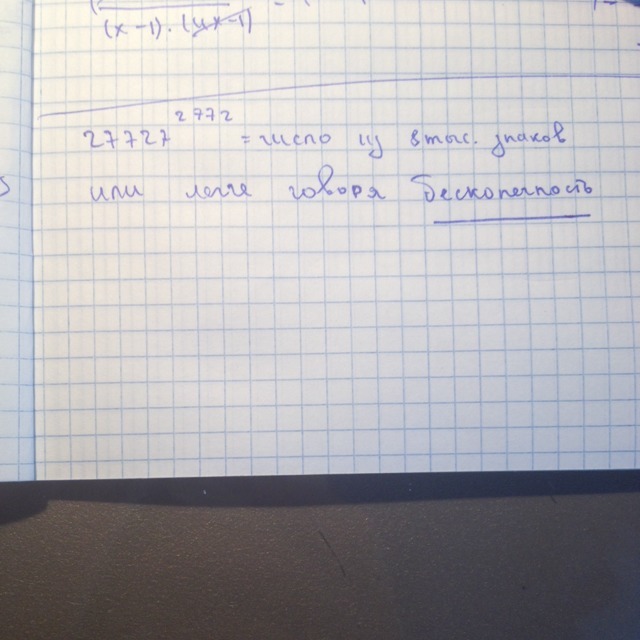 (x-1)·(4x-1)
27727^2772 = число из 8 тыс. знаков
или легче говоря бесконечность